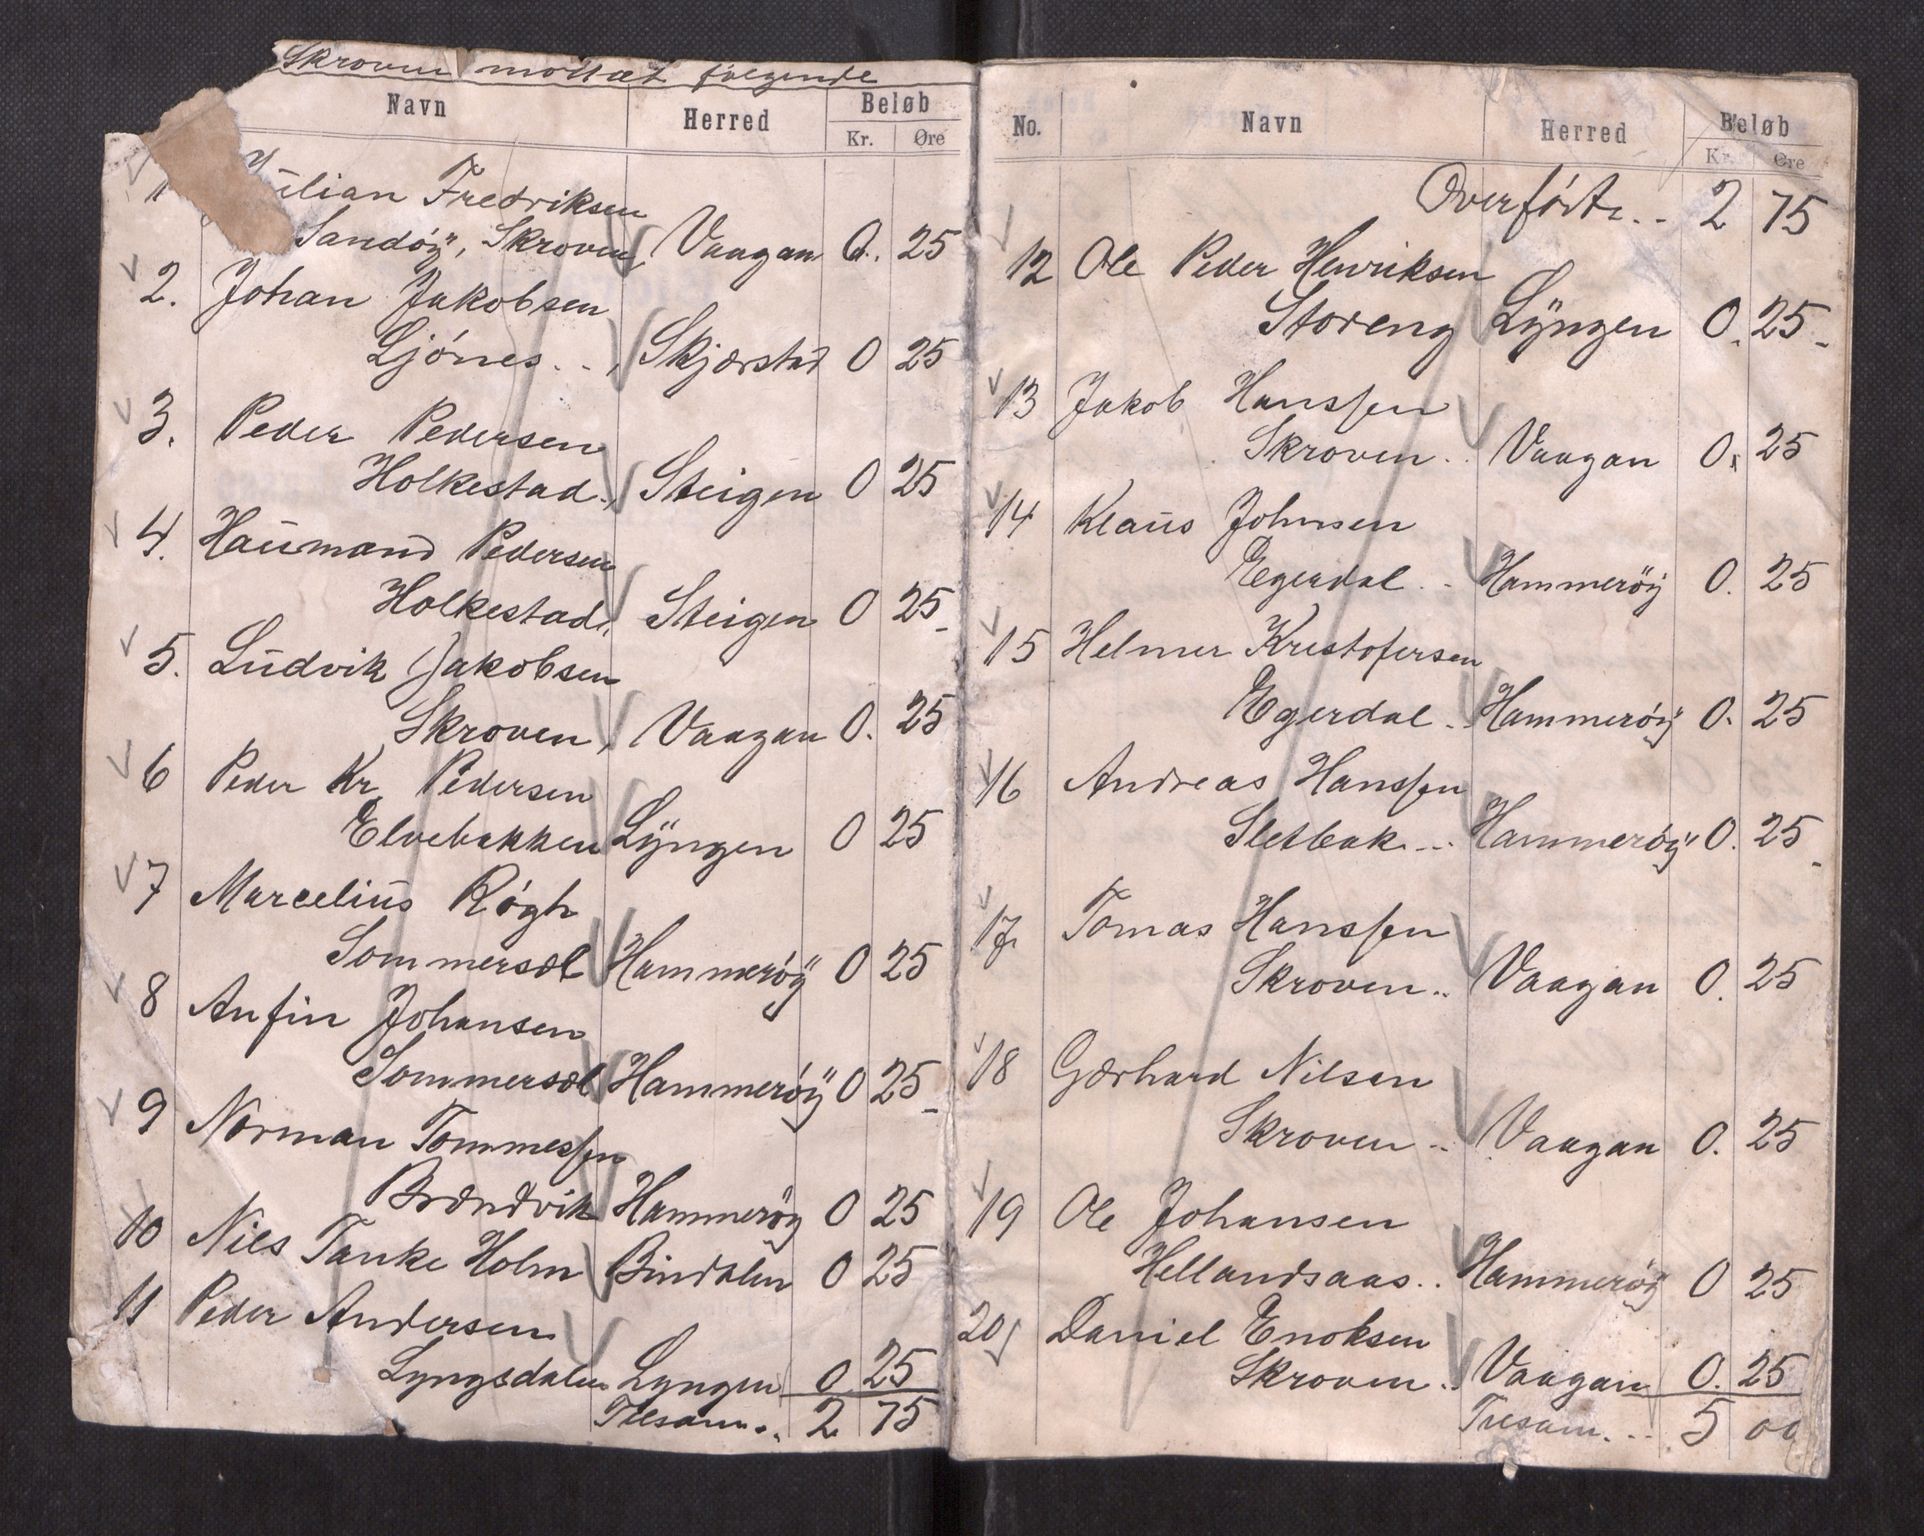 Skroven mottat følgende
Navn Herred Beløb
Kr. Øre
1 Julian Fredriksen
Sandöÿ, Skroven, Vaagan 0. 25
2. Johan Jakobsen
Ljönes.., Skjærstad 0 25
3. Peder Pedersen
Holkestad., Steigen 0 25
4. Haumand Pedersen
Holkestad, Steigen 0 25
5. Ludvik Jakobsen
Skroven, Vaagan 0. 25
6 Peder Kr. Pedersen
Elvebakken Lÿngen 0 25
7 Marcelius Røgh
Sommersæl Hammerøÿ 0 25
8 Anfin Johansen
Sommersæl Hammerøÿ 0 25
9 Norman Tommessen
Brændvik Hammerøÿ 0 25
10 Nils Tanke Holm Bindalen 0 25
11 Peder Andersen
Lyngsdalen Lyngen 0 25
Tilsam.. 2 75
No. Navn Herred Beløb
Kr. Øre
Overført... 2 75
12 Ole Peder Henriksen
Storeng Lÿngen 0. 25
13 Jakob Hanssen
Skroven.. Vaagan 0. 25
14 Klaus Johnsen
Egerdal.. Hammerøÿ 0. 25
15 Helmer Kristofersen
Egerdal.. Hammerøÿ 0. 25
16 Andreas Hanssen
Sletbak... Hammerøÿ 0. 25
17. Tomas Hanssen
Skroven.. Vaagan 0. 25
18 Gærhard Nilsen
Skroven.. Vaagan 0. 25
19 Ole Johansen
Hellandsaas.. Hammerøÿ 0 25
20 Daniel Enoksen
Skroven.. Vaagan 0. 25
Tilsam... 5 00